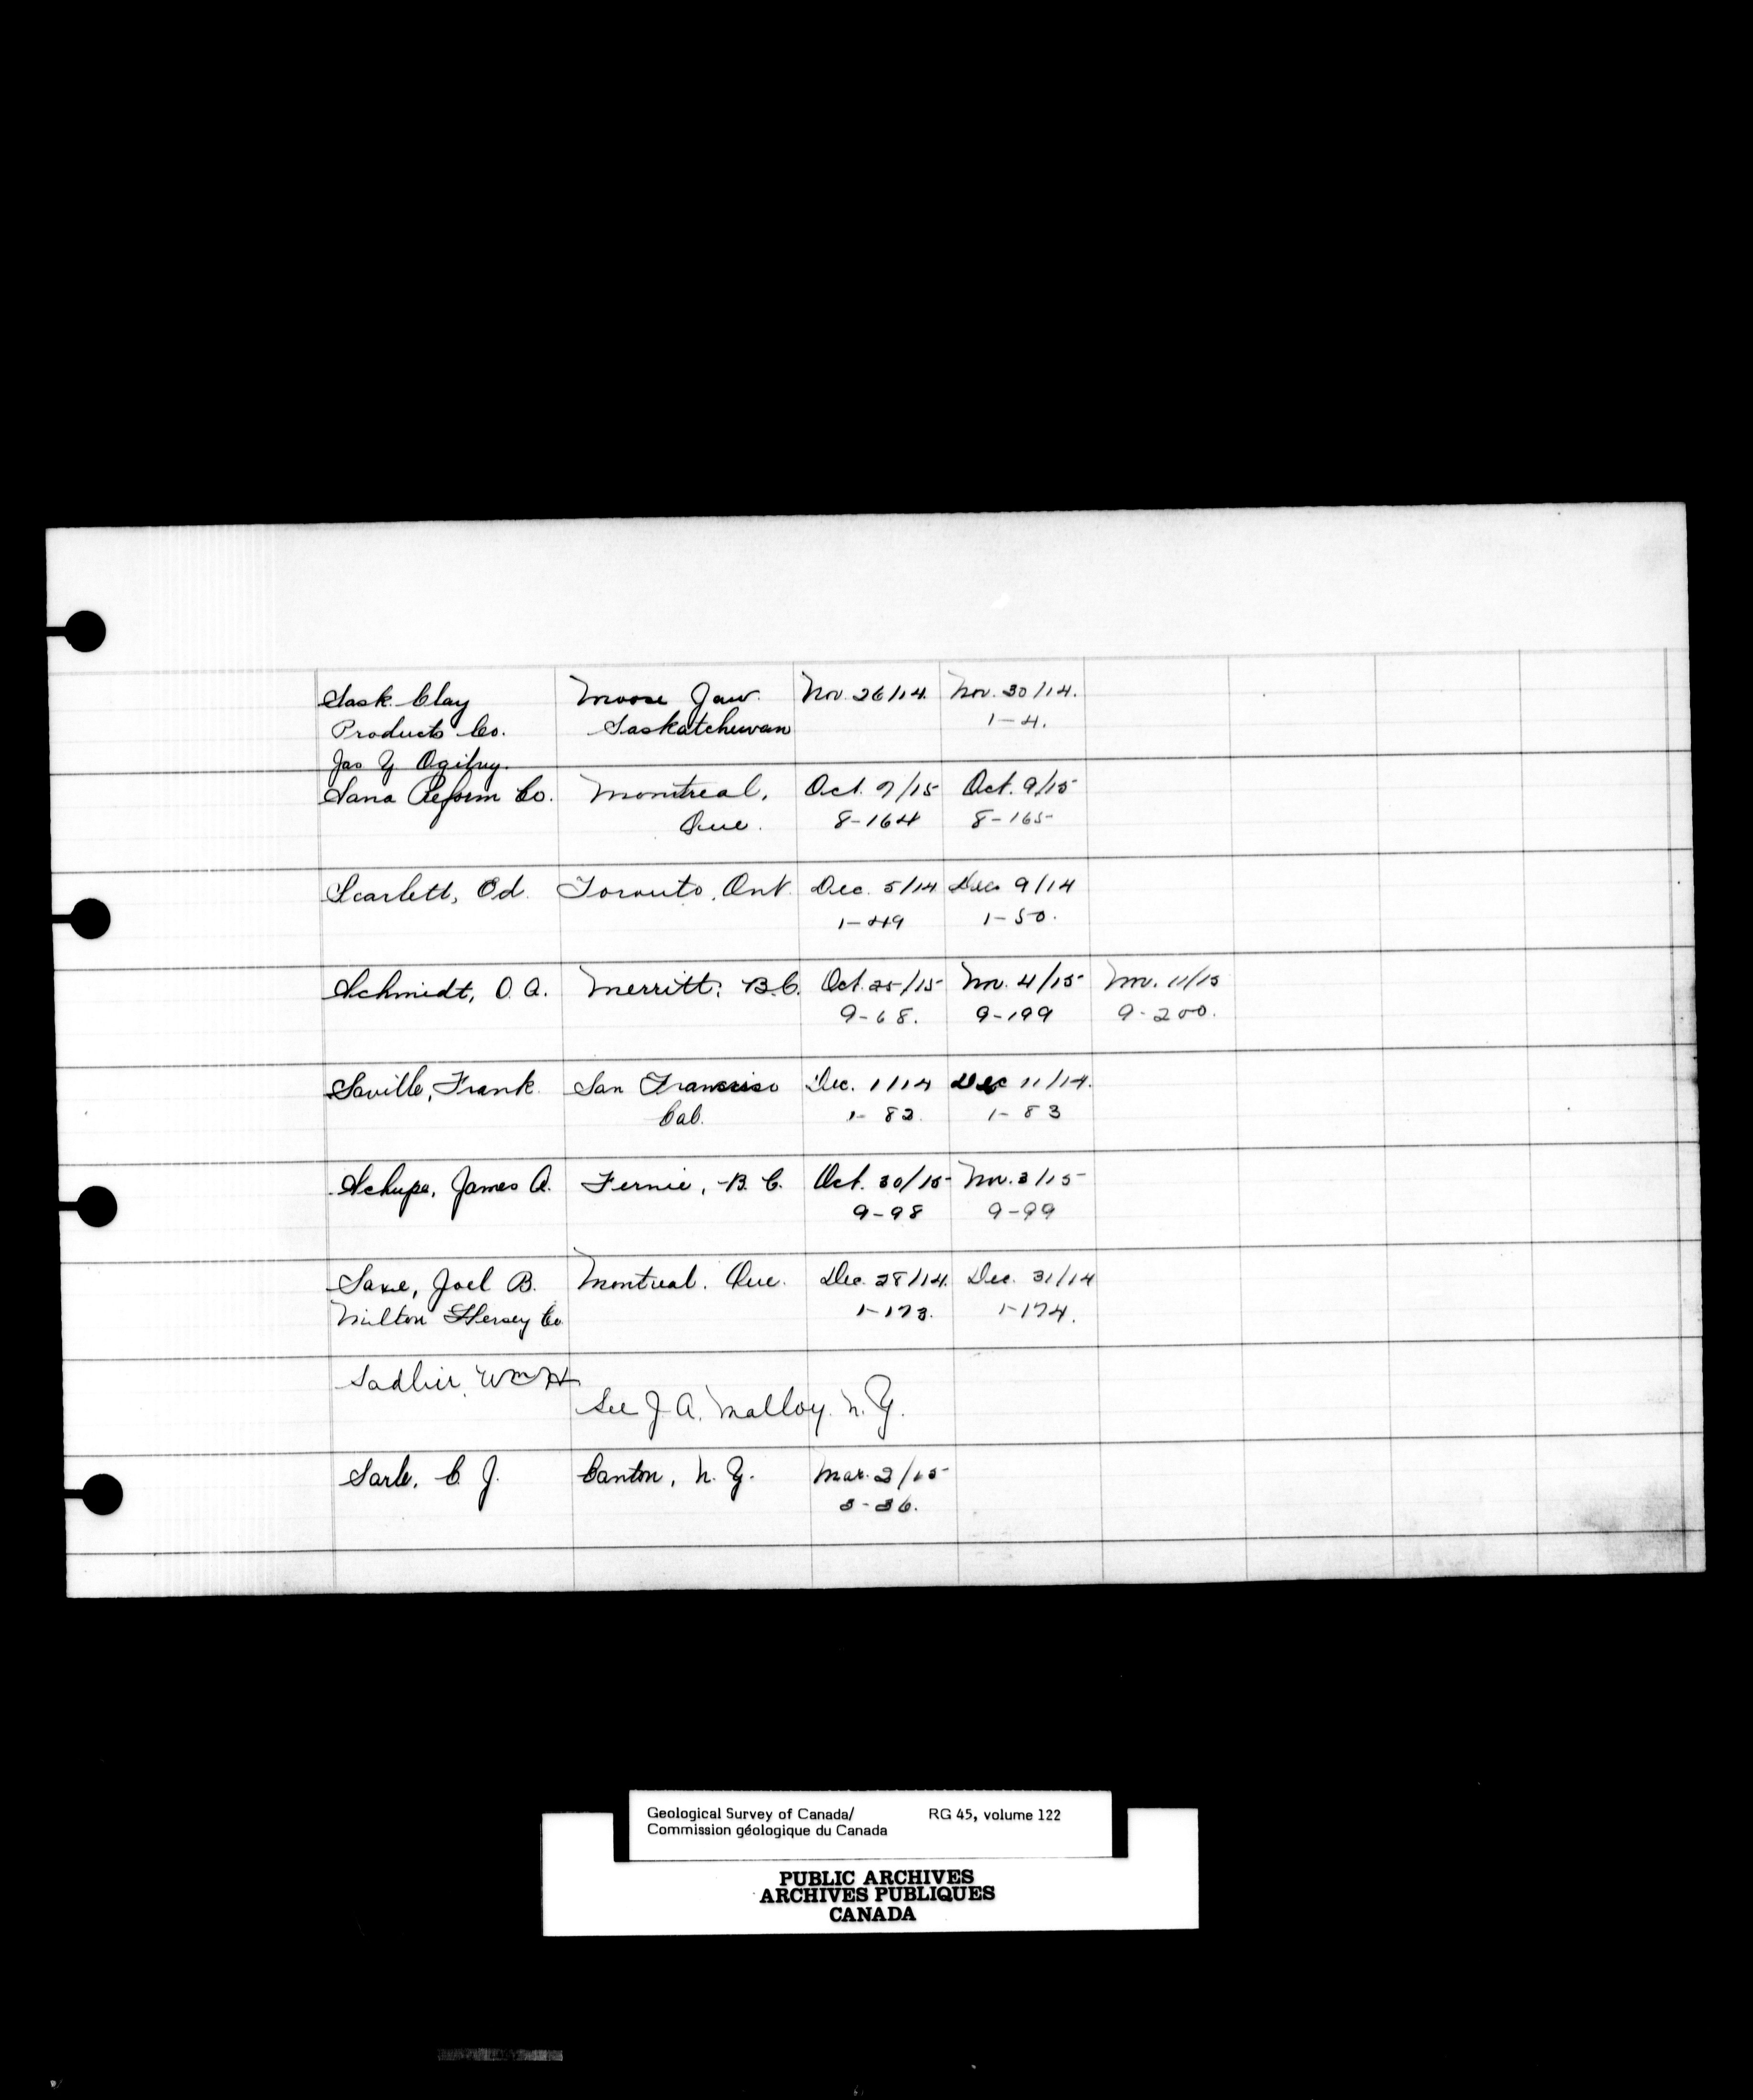 Sask. Clay Moose Jaw Nov. 26/14. Nov. 30/14.
Products Co. Saskatchewan 1-4.
Jas Y Ogilvy.
Sana Reform Co. Montreal, Oct. 7/15 Oct. 9/15
Que. 8-164 8-165
Scarlett, Ed. Toronto, Ont. Dec. 5/14 Dec 9/14
1-49 1-50.
Schmidt, O. A. Merritt, B.C. Oct. 25/15 Nov. 4/15 Nov. 11/15
9-68. 9-199 9-200.
Saville, Frank. San Francisco Dec. 1/14 Dec 11/14.
Cal. 1-82. 1-83
James A. Fernie, B. C. Oct. 30/15 Nov. 3/15
9-98 9-99
Saxe, Joel B. Montreal. Que. Dec. 28/14. Dec. 31/14
Milton Hersey Co. 1-173. 1-174.
Sadlier, Wm H
See J. A. Malloy. N. Y.
Sarle, C. J. Canton, N. Y. Mar. 2/15
3-36.
Geological Survey of Canada/ RG 45, volume 122
Commission géologique du Canada
PUBLIC ARCHIVES
ARCHIVES PUBLIQUES
CANADA